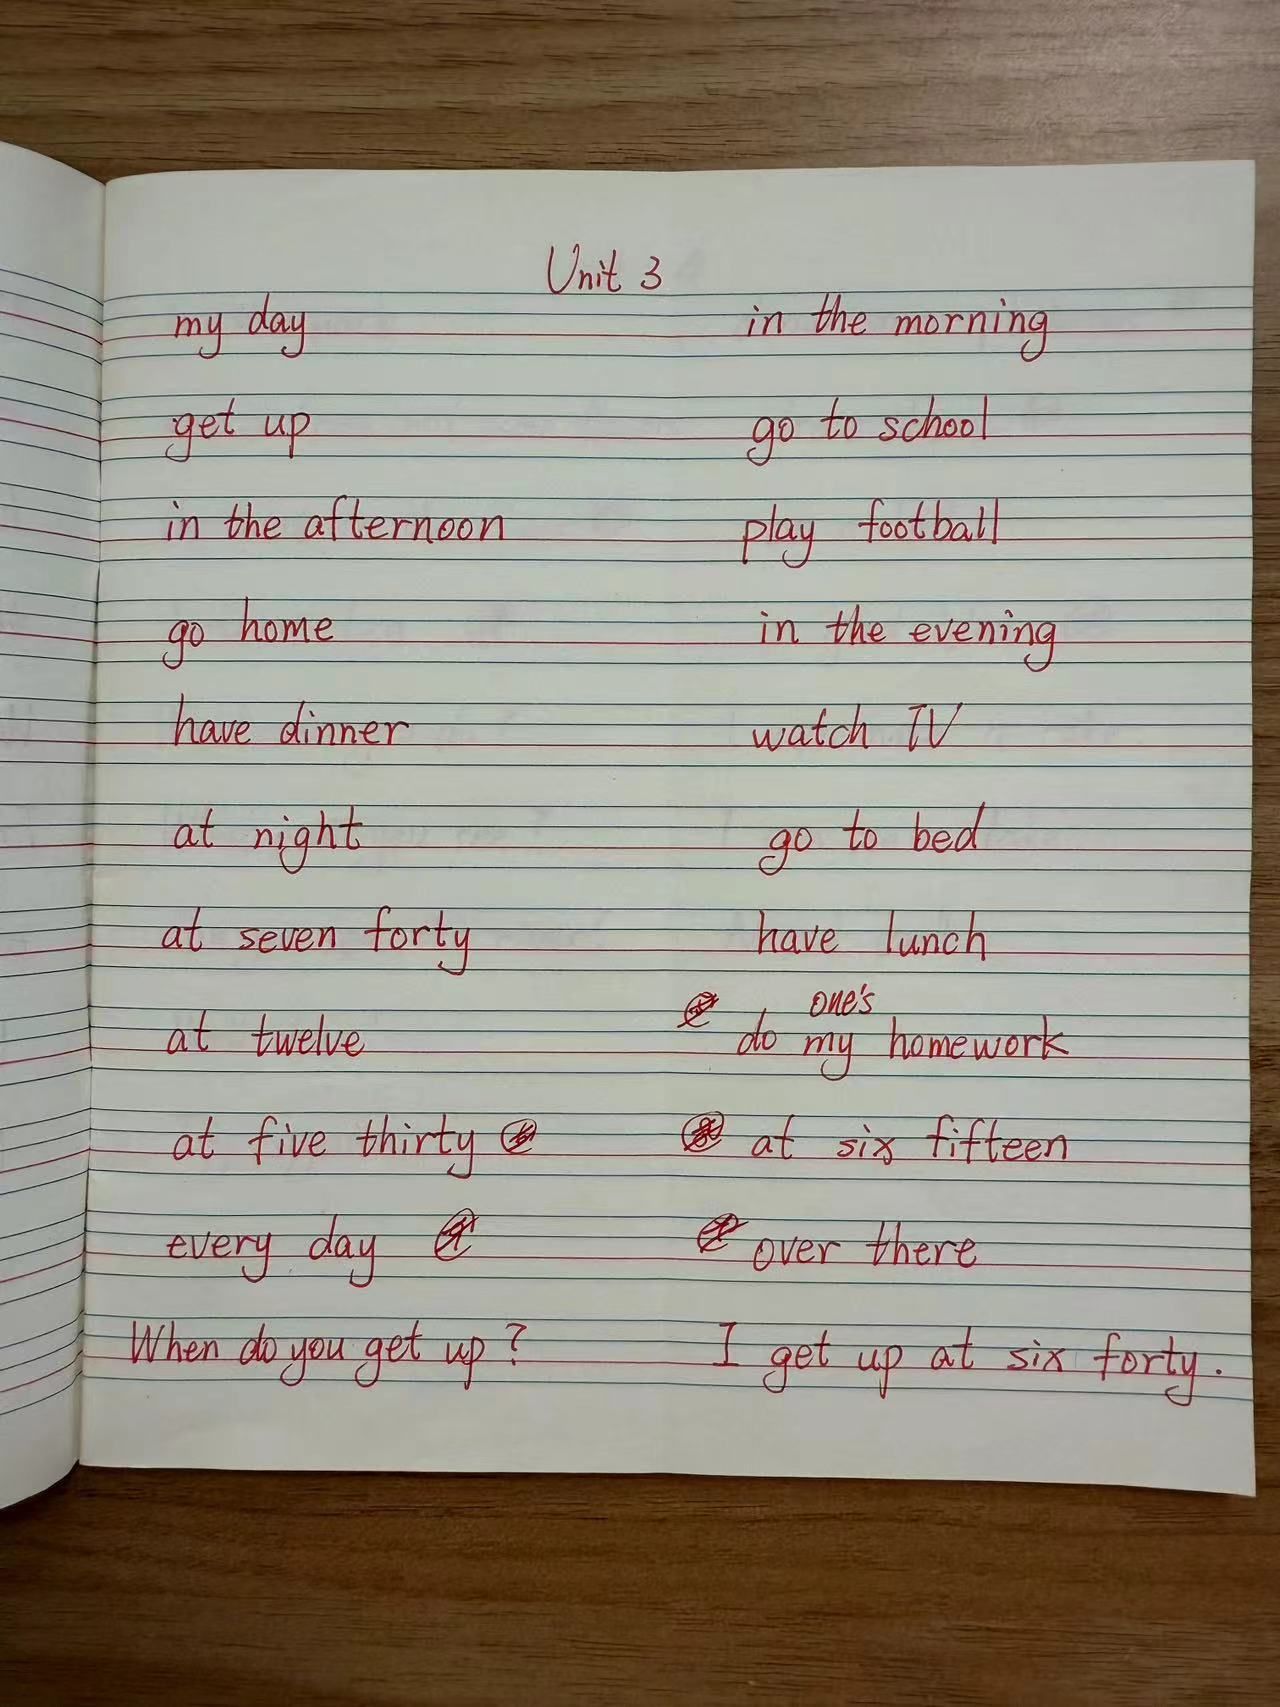 Unit 3
my day in the morning
get up go to school
in the afternoon play football
go home in the evening
have dinner watch TV
at night go to bed
at seven forty have lunch
one's
at twelve do my homework
at five thirty at six fifteen
every day over there
When do you get up? I get up at six forty.